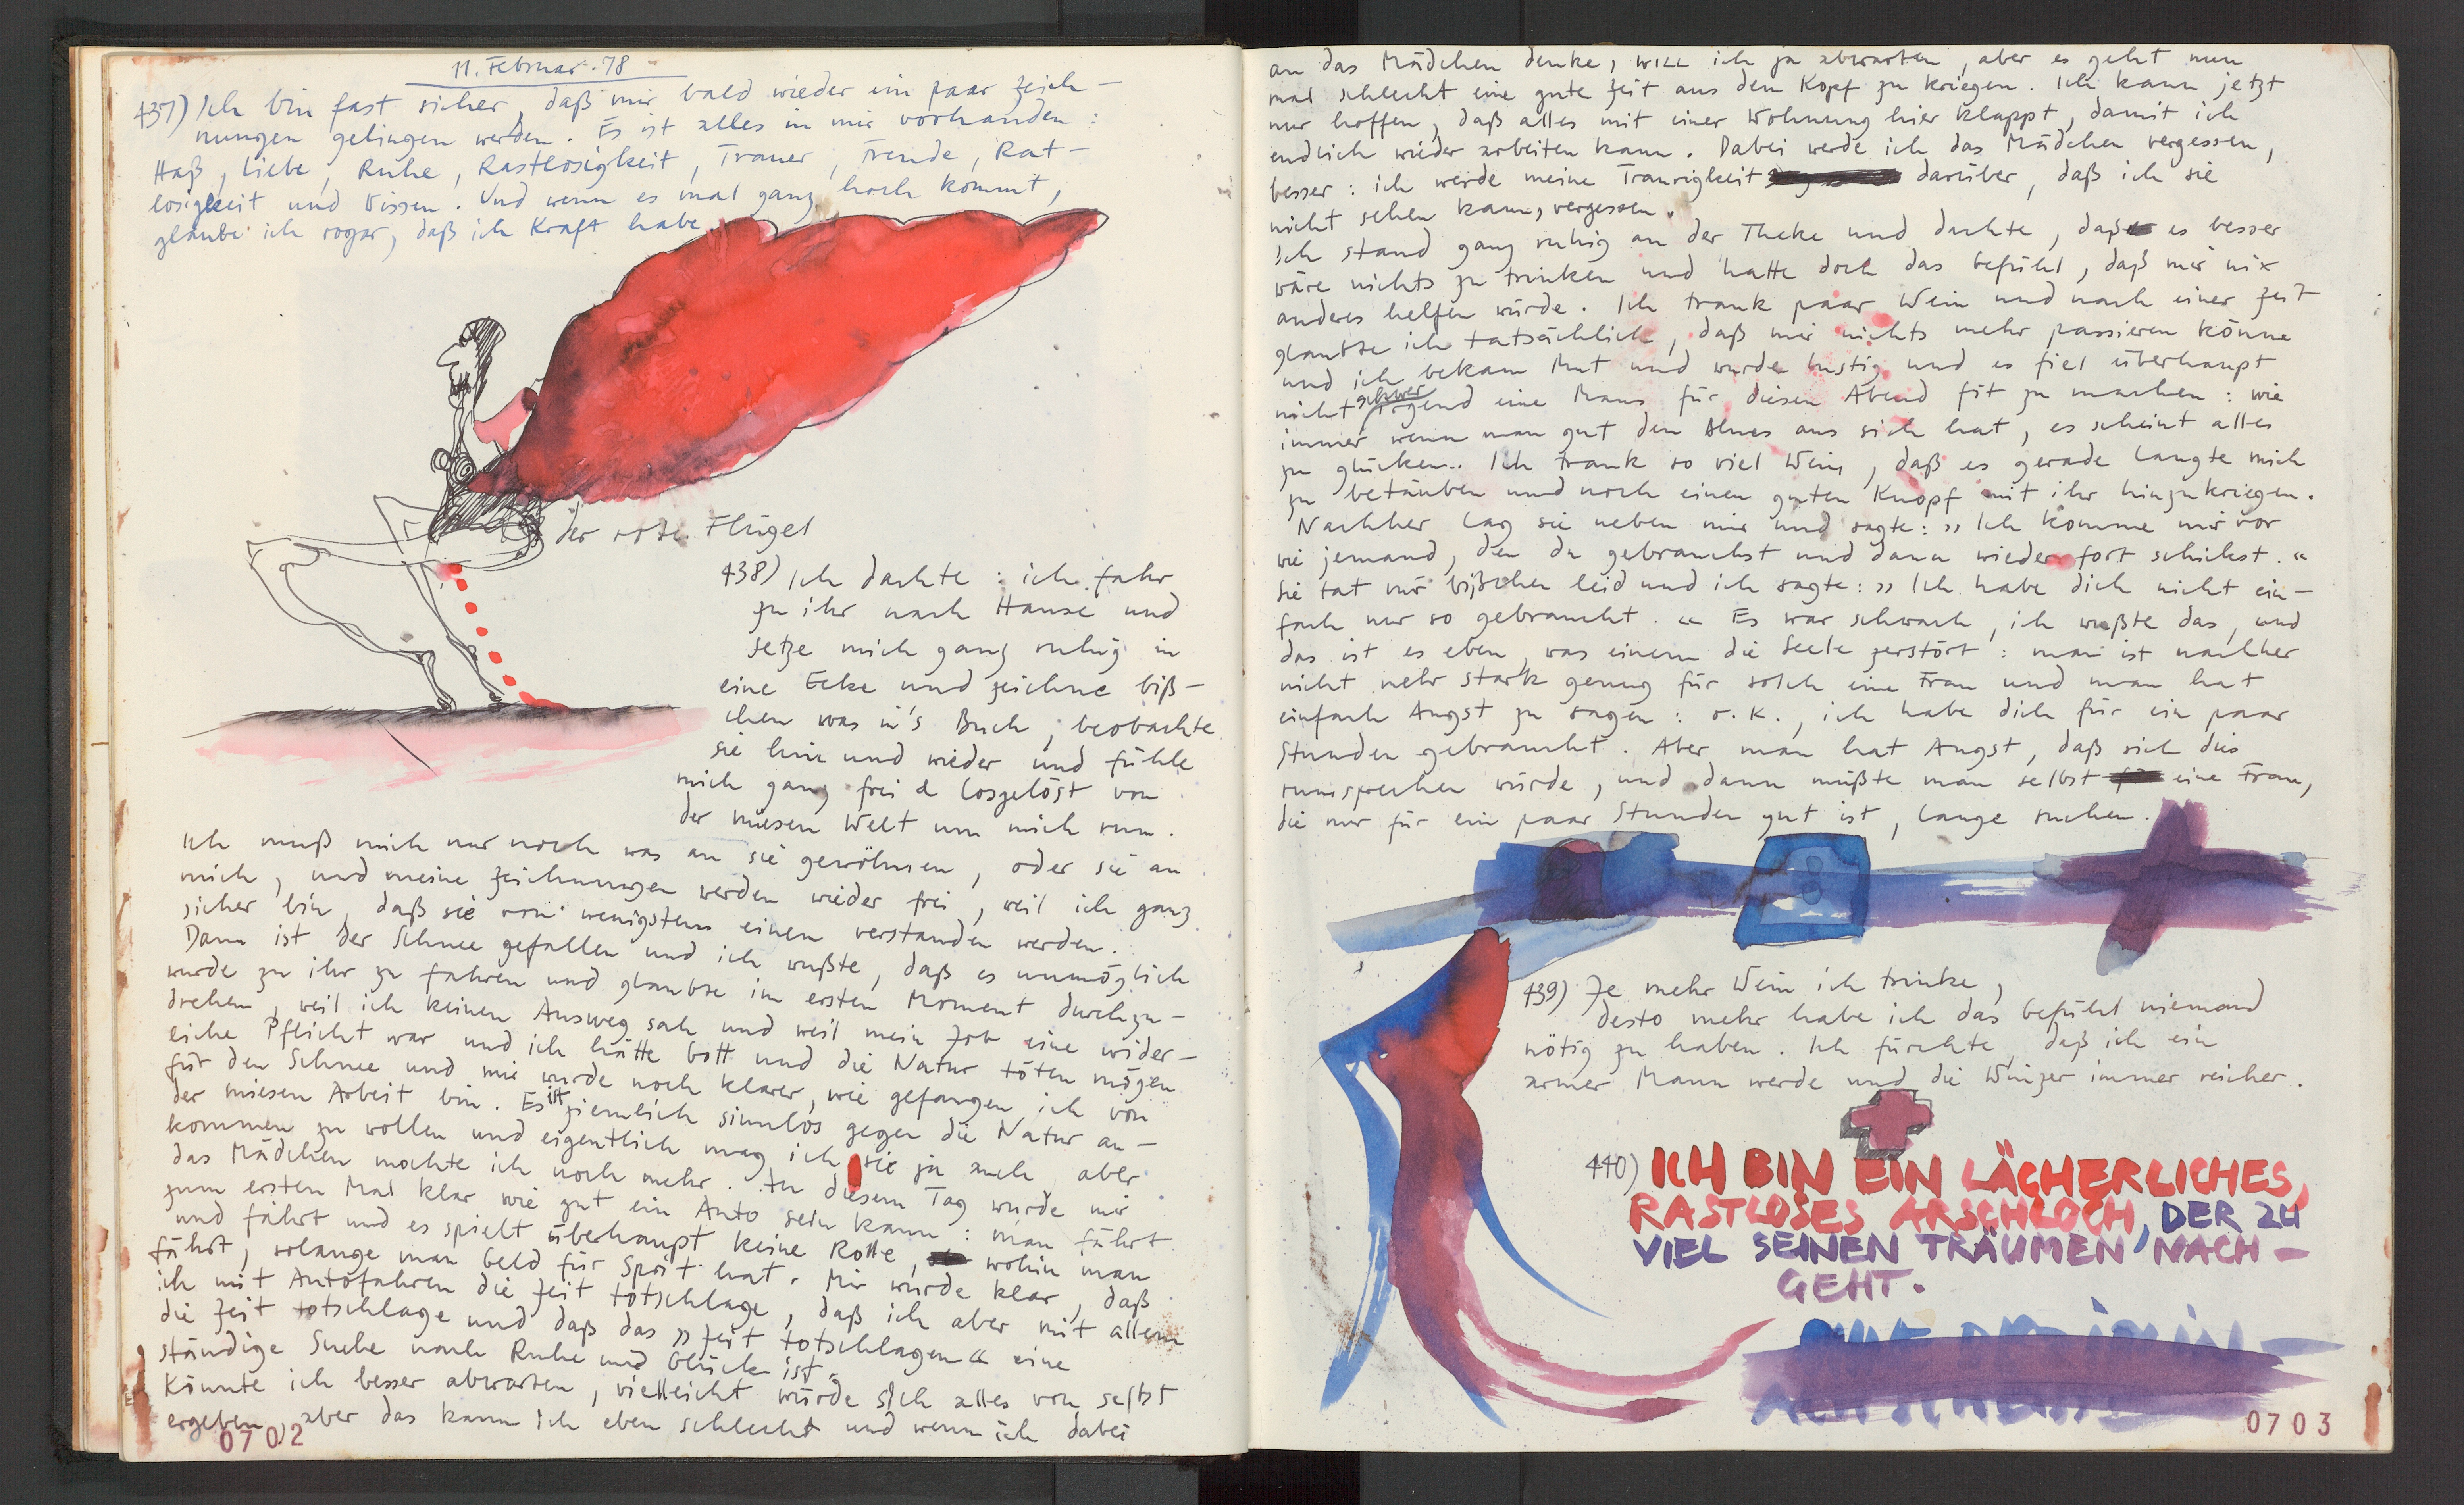 11. Februar. 78
437) Ich bin fast sicher, daß mir bald wieder ein paar Zeich-
nungen gelingen werden. Es ist alles in mir vorhanden:
Haß, Liebe, Ruhe, Rastlosigkeit, Trauer, Freude, Rat-
losigkeit und Wissen. Und wenn es mal ganz hoch kommt,
glaube ich sogar, daß ich Kraft habe.
der rote Flügel
438) Ich dachte: ich fahr
zu ihr nach Hause und
setze mich ganz ruhig in
eine Ecke und zeichne biß-
chen was in's Buch, beobachte
sie hin und wieder und fühle
mich ganz frei & losgelöst von
der miesen Welt um mich rum.
Ich muß mich nur noch was an sie gewöhnen, oder sie an
mich, und meine Zeichnungen werden wieder frei, weil ich ganz
sicher bin, daß sie von wenigstens einem verstanden werden.
Dann ist der Schnee gefallen und ich wußte, daß es unmöglich
wurde zu ihr zu fahren und glaubte im ersten Moment durchzu-
drehen, weil ich keinen Ausweg sah und weil mein Job eine wider-
liche Pflicht war und ich hätte Gott und die Natur töten mögen
für den Schnee und mir wurde noch klarer, wie gefangen ich von
der miesen Arbeit bin. Es ist ziemlich sinnlos gegen die Natur an-
kommen zu wollen und eigentlich mag ich sie ja auch, aber
das Mädchen mochte ich noch mehr. An diesem Tag wurde mir
zum ersten Mal klar wie gut ein Auto sein kann: man fährt
und fährt und es spielt überhaupt keine Rolle, wohin man
fährt, solange man Geld für Sprit hat. Mir wurde klar, daß
ich mit Autofahren die Zeit totschlage, daß ich aber mit allem
die Zeit totschlage und daß das »Zeit totschlagen« eine
ständige Suche nach Ruhe und Glück ist.
Könnte ich besser abwarten, vielleicht würde sich alles von selbst
ergeben, aber das kann ich eben schlecht und wenn ich dabei
0702
an das Mädchen denke, will ich ja abwarten, aber es geht nun
mal schlecht eine gute Zeit aus dem Kopf zu kriegen. Ich kann jetzt
nur hoffen, daß alles mit einer Wohnung hier klappt, damit ich
endlich wieder arbeiten kann. Dabei werde ich das Mädchen vergessen,
besser: ich werde meine Traurigkeit darüber, daß ich sie
nicht sehen kann, vergessen.
Ich stand ganz ruhig an der Theke und dachte, daß es besser
wäre nichts zu trinken und hatte doch das Gefühl, daß mir nix
anderes helfen würde. Ich trank paar Wein und nach einer Zeit
glaubte ich tatsächlich, daß mir nichts mehr passieren könne
und ich bekam Mut und wurde lustig und es fiel überhaupt
nicht schwer irgend eine Maus für diesen Abend fit zu machen: wie
immer wenn man gut den Ahnes aus sich hat, es scheint alles
zu glücken.. Ich trank so viel Wein, daß es gerade langte mich
zu betäuben und noch einen guten Knopf mit ihr hinzukriegen.
Nachher lag sie neben mir und sagte: »Ich komme mir vor
wie jemand, den du gebrauchst und dann wieder fort schickst.«
Sie tat mir bißchen leid und ich sagte: »Ich habe dich nicht ein-
fach nur so gebraucht.« Es war schwach, ich wußte das, und
das ist es eben, was einem die Seele zerstört: man ist nachher
nicht mehr stark genug für solch eine Frau und man hat
einfach Angst zu sagen: o.k., ich habe dich für ein paar
Stunden gebraucht. Aber man hat Angst, daß sich dies
rumsprechen würde, und dann müßte man selbst eine Frau,
die nur für ein paar Stunden gut ist, lange suchen.
439) Je mehr Wein ich trinke,
desto mehr habe ich das Gefühl niemand
nötig zu haben. Ich fürchte, daß ich ein
armer Mann werde und die Winzer immer reicher.
440) ICH BIN EIN LÄCHERLICHES,
RASTLOSES ARSCHLOCH, DER ZU
VIEL SEINEN TRÄUMEN NACH-
GEHT.
0703